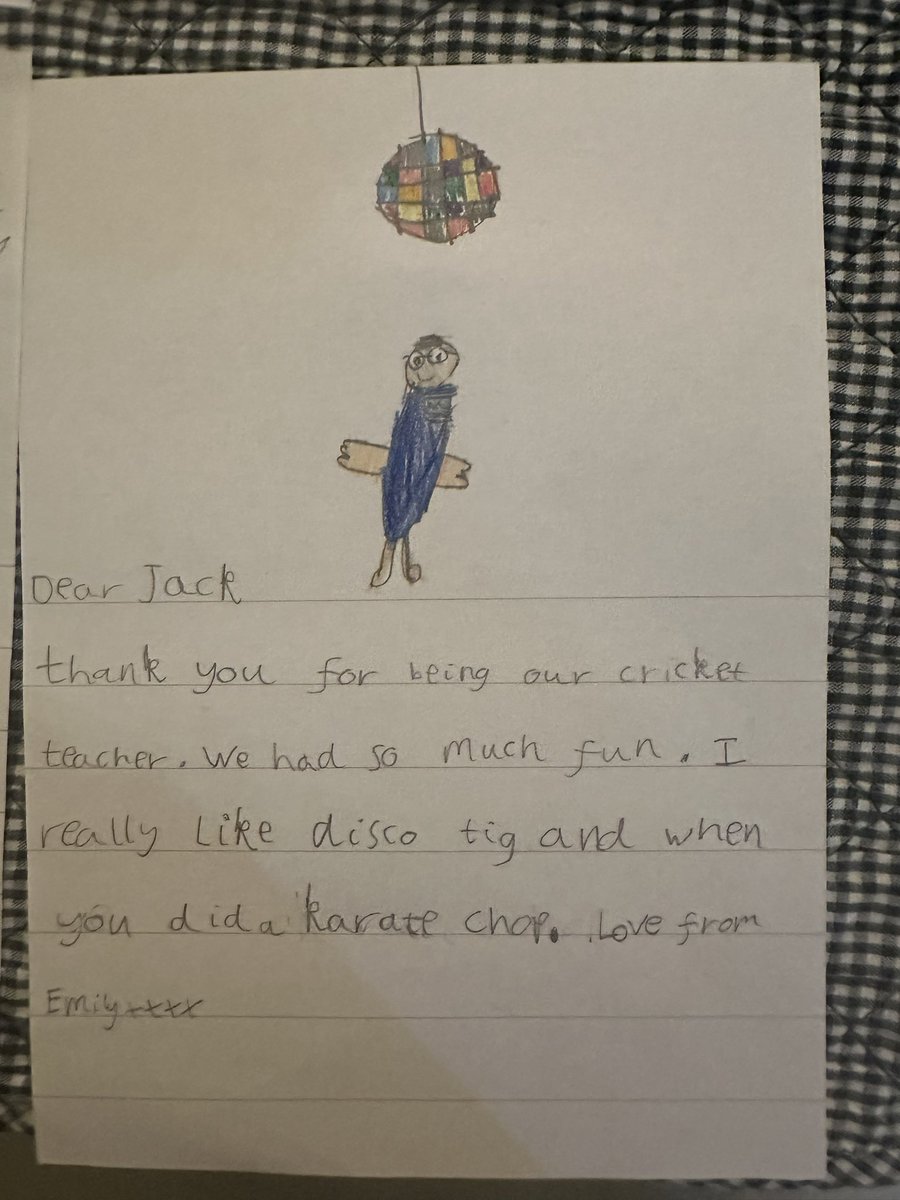 Dear Jack
thank you for being our cricket
teacher. We had so much fun. I
really like disco tig and when
you did a karate chop. Love from
Emily xxxx